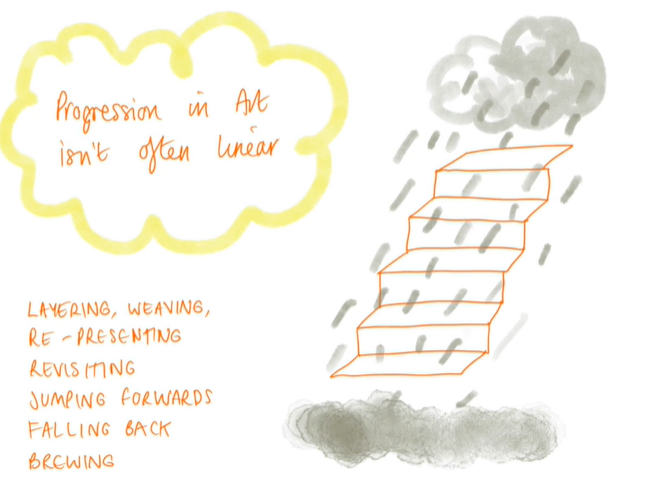 Progression in Art
isn't often linear
LAYERING, WEAVING,
RE-PRESENTING
REVISITING
JUMPING FORWARDS
FALLING BACK
BREWING